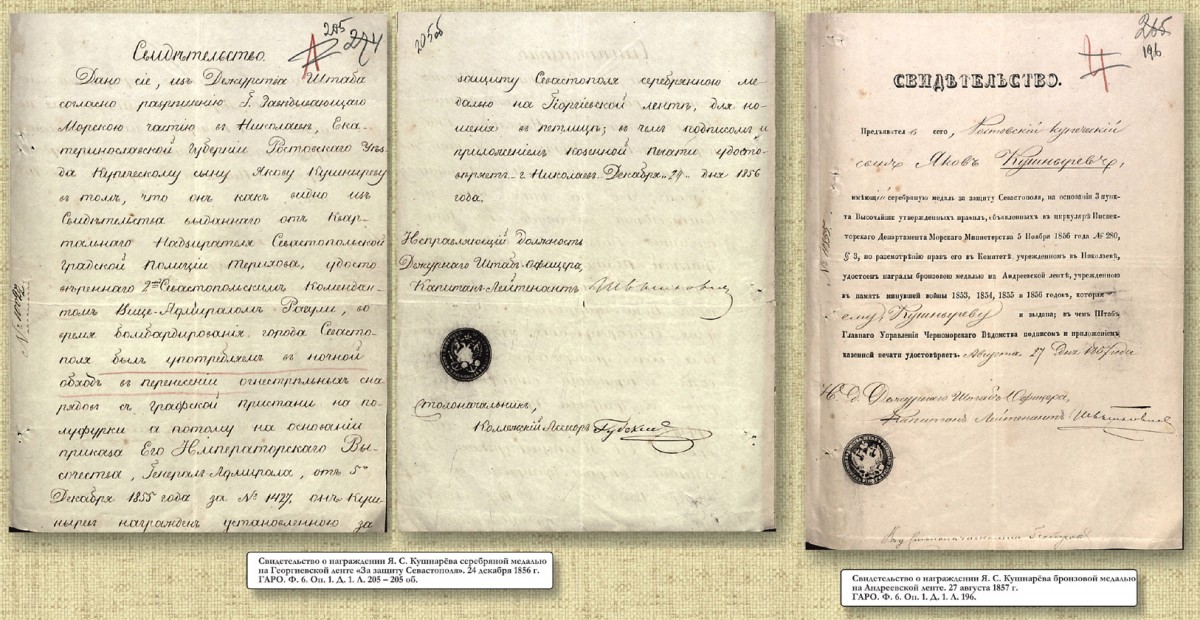 205
274
Свидѣтельство.
Дано сіе, изъ Дежурства Штаба
согласно разрѣшенію Г. Завѣдывающаго
Морскою частію въ Николаевѣ, Ека-
теринославской Губерніи Ростовскаго Уѣз-
да Купеческому сыну Якову Кушнареву
въ томъ, что онъ какъ видно изъ
Свидѣтельства выданнаго отъ Квар-
тальнаго Надзирателя Севастопольской
Градской Полиціи Терехова, удосто-
вѣреннаго 2мъ Севастопольскимъ Комендан-
томъ Вице-Адмираломъ Рогули, во
время бомбардированія города Севасто-
поля былъ употребляемъ въ ночной
обходъ въ перенесеніи огнестрѣльныхъ сна-
рядовъ съ Графской пристани на по-
луфурки а потому на основаніи
приказа Его Императорскаго Вы-
сочества, Генералъ Адмирала, отъ 5го
Декабря 1855 года за № 1427. онъ Куш-
наревъ награжденъ установленною за
205об
защиту Севастополя серебрянною ме-
далью на Георгіевской лентѣ, для но-
шенія въ петлицѣ; въ чемъ подписомъ и
приложеніемъ казенной печати удосто-
вѣряетъ. г. Николаевъ Декабря „24" дня 1856
года.
Исправляющій Должность
Дежурнаго Штабъ-Офицера,
Капитанъ-Лейтенантъ
Столоначальникъ,
Коллежскій Ассесоръ
Свидетельство о награждении Я. С. Кушнарёва серебряной медалью
на Георгиевской ленте «За защиту Севастополя». 24 декабря 1856 г.
ГАРО. Ф. 6. Оп. 1. Д. 1. Л. 205 – 205 об.
196
СВИДѢТЕЛЬСТВО.
Предъявителъ сего, Ростовскій купеческій
сынъ Яковъ Кушнаревъ,
имѣющій серебряную медаль за защиту Севастополя, на основаніи 3 пунк-
та Высочайше утвержденныхъ правилъ, объявленныхъ въ циркулярѣ Инспек-
торскаго Департамента Морскаго Министерства 5 Ноября 1856 года № 280,
§ 3, по разсмотрѣнію правъ его въ Комитетѣ, учрежденномъ въ Николаевѣ,
удостоенъ награды бронзовою медалью на Андреевской лентѣ, учрежденною
въ память минувшей войны 1853, 1854, 1855 и 1856 годовъ, которая
ему Кушнареву и выдана; въ чемъ Штабъ
Главнаго Управленія Черноморскаго Вѣдомства подписомъ и приложеніемъ
казенной печати удостовѣряетъ. Августа 27 дня 1857 года
И. Д. Дежурнаго Штабъ-Офицера,
Капитанъ Лейтенантъ
Свидетельство о награждении Я. С. Кушнарёва бронзовой медалью
на Андреевской ленте. 27 августа 1857 г.
ГАРО. Ф. 6. Оп. 1. Д. 1. Л. 196.